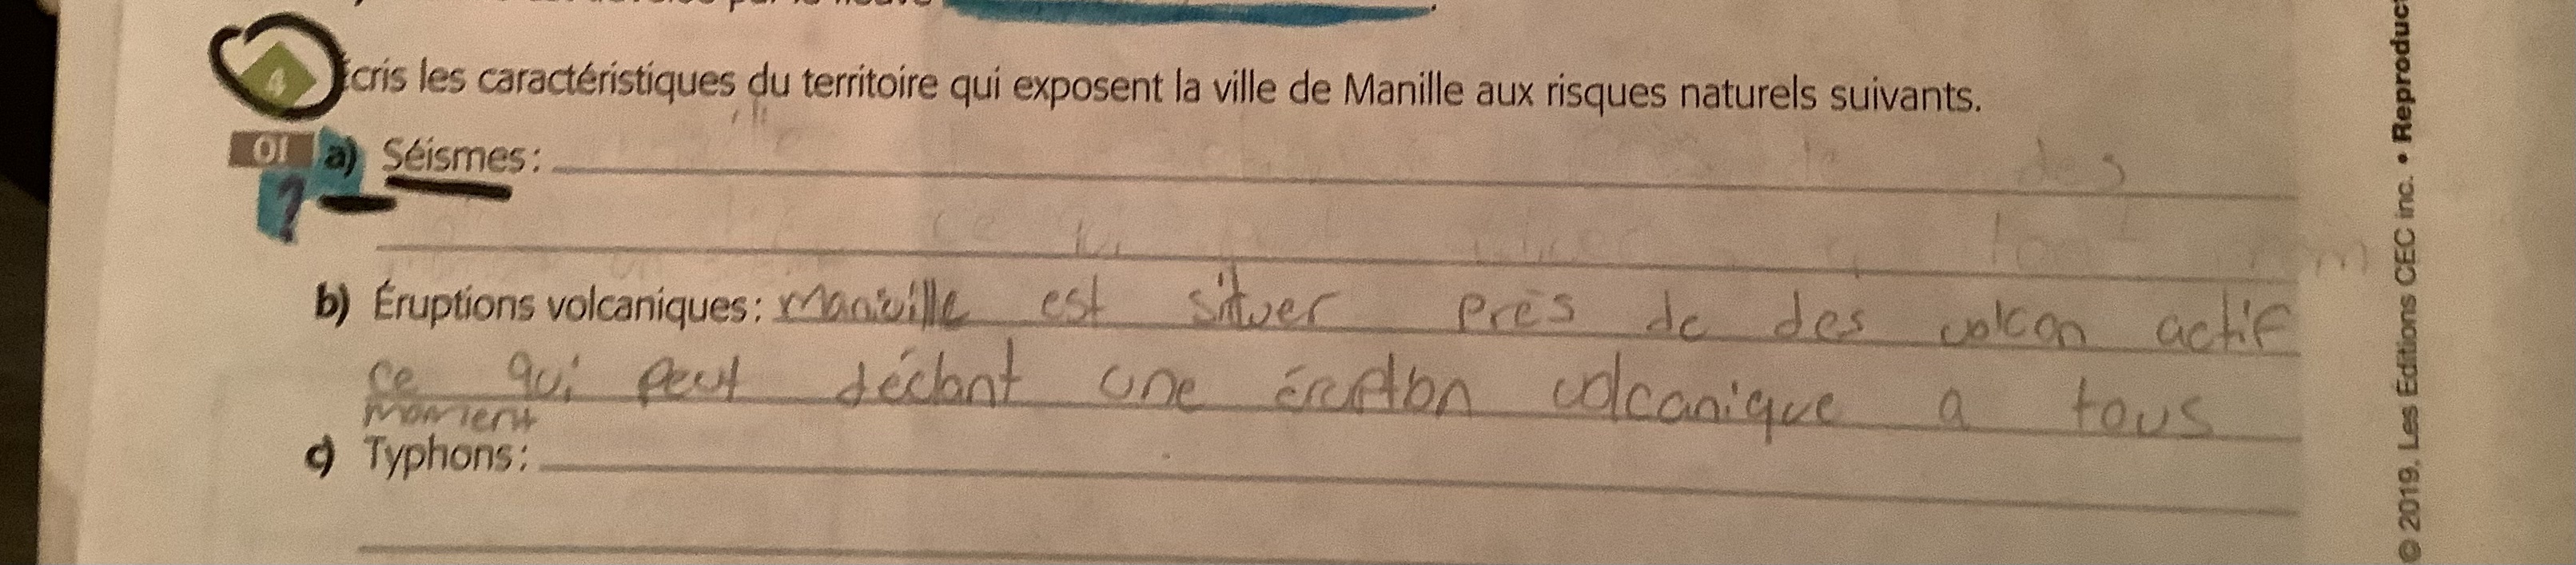 4 Écris les caractéristiques du territoire qui exposent la ville de Manille aux risques naturels suivants.
OI a) Séismes :
?
b) Éruptions volcaniques : Manville est situer près de des volcan actif
ce qui peut déclant une éruption volcanique a tous
moment
c) Typhons :
© 2019, Les Éditions CEC inc. • Reproduc